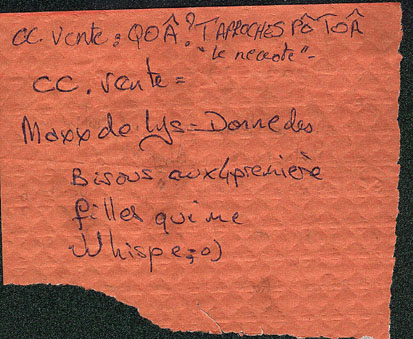 CC. Vente : QOÂ ? T'APPROCHES PÔ TOÂ
"le necote" -
CC. vente =
Maxx de lys = Donne des
Bisous aux 4 première
filles qui me
Whispe ;o)